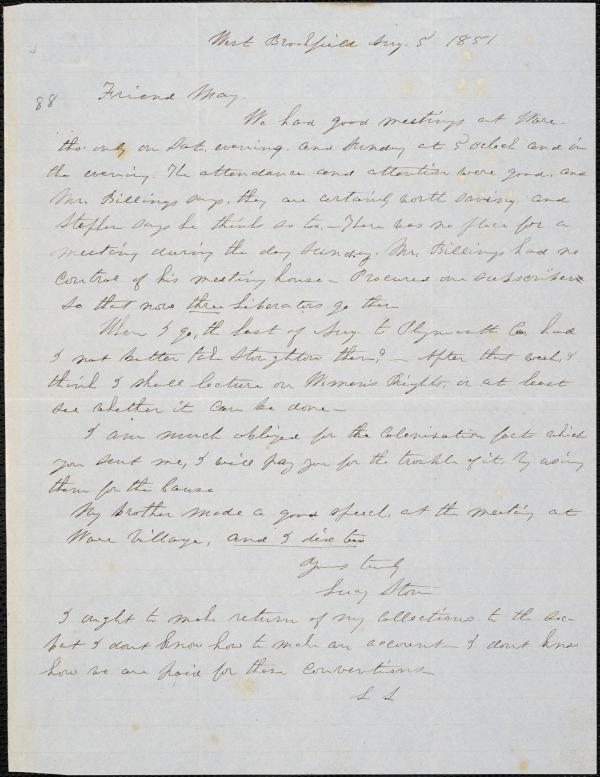 West Brookfield Aug. 5 1851
88
Friend May.
We had good meetings at Ware-
tho' only on Sat. evening. and Sunday at 5 oclock and in
the evening. The attendance and attention were good, and
Mr. Billings says, they are certainly worth saving, and
Stephen says he thinks so too,- There was no place for a
meeting during the day Sunday. Mr. Billings had no
control of his meeting house - Procured one subscriber
so that now three Liberators go there
When I go, the last of Aug. to Plymouth Co. had
I not better take Stoughton then? - After that week, I
think I shall lecture on Woman's Rights, or at least
see whether it can be done-
I am much obliged for the Colonisation facts which
you sent me, I will pay you for the trouble of it, by using
them for the Cause
My brother made a good speech, at the meeting at
Ware Village, and I did too
Yours truly
Lucy Stone
I ought to make return of my collections to the Soc-
but I dont know how to make an account - I dont know
how we are paid for these conventions
L S